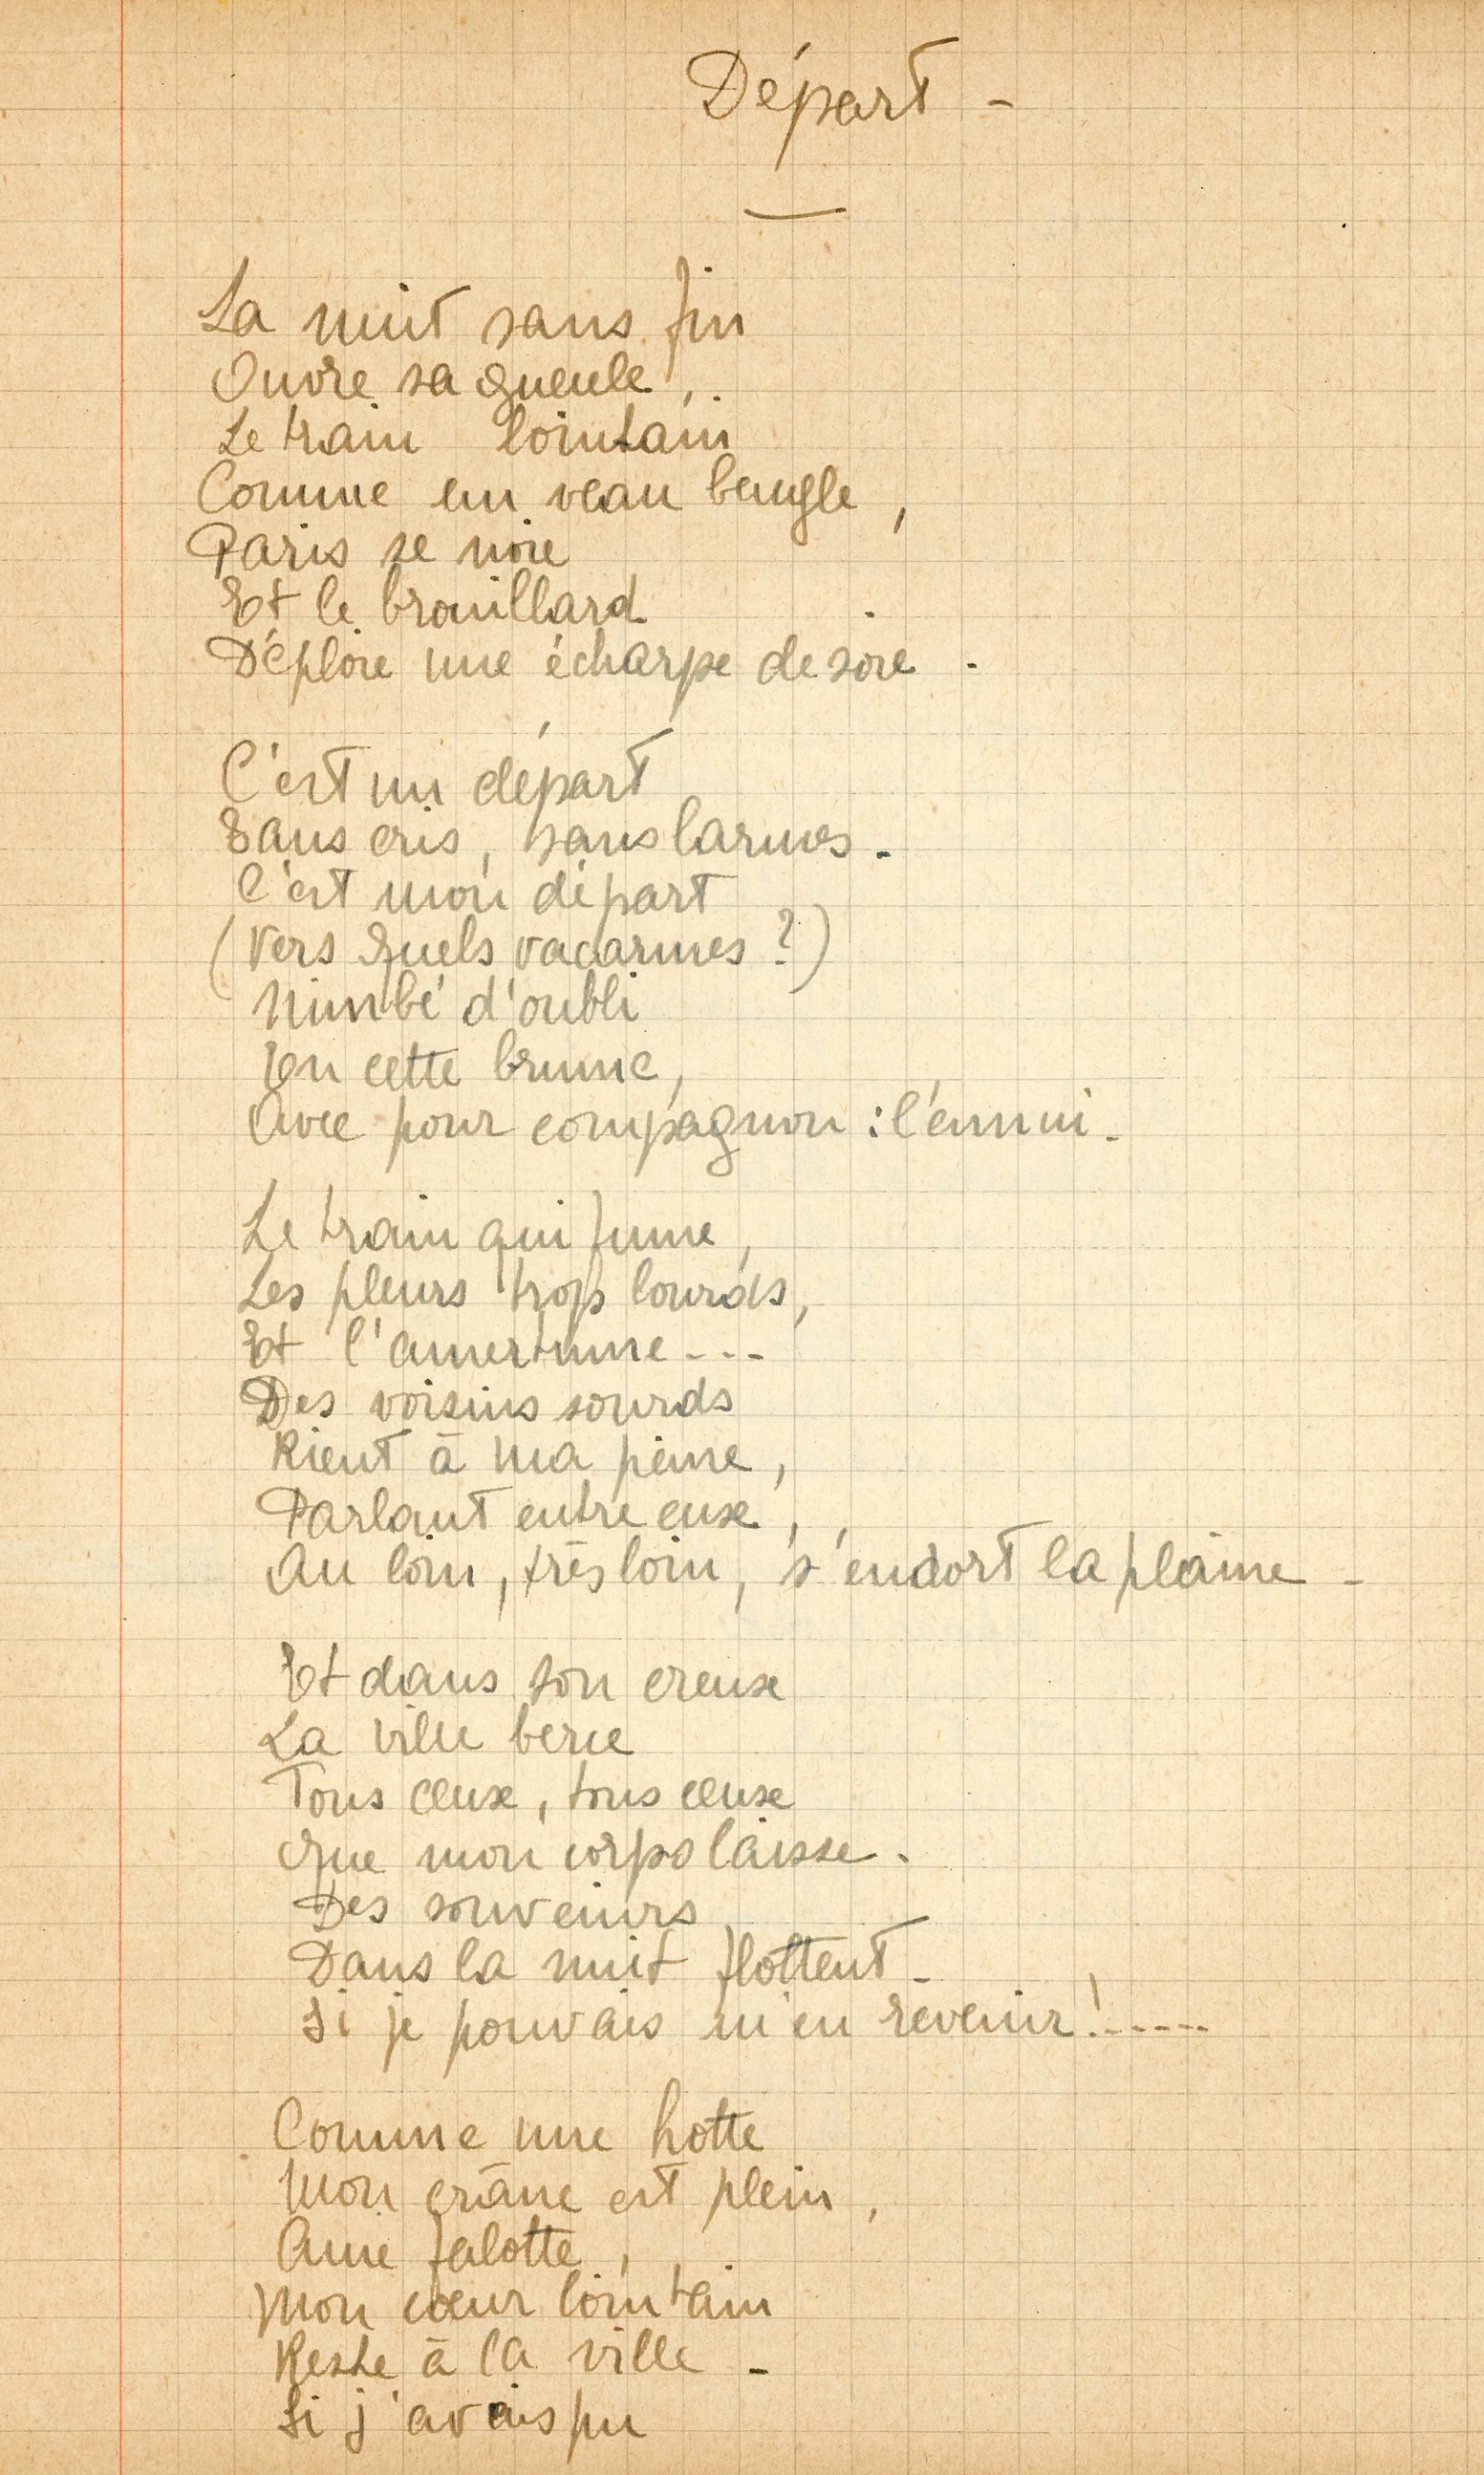 Départ -
La nuit sans fin
Ouvre sa gueule,
Le train lointain
Comme un veau beugle,
Paris se noie
Et le brouillard
Déploie une écharpe de soie.
C'est un départ
Sans cris, sans larmes.
C'est mon départ
(Vers quels vacarmes ?)
Nimbé d'oubli
En cette brume,
Avec pour compagnon : l'ennui.
Le train qui fume,
Les pleurs trop lourds,
Et l'amertume...
Des voisins sourds
Rient à ma peine,
Parlant entre eux,
Au loin, très loin, s'endort la plaine -
Et dans son creux
La ville berce
Tous ceux, tous ceux
Que mon corps laisse.
Des souvenirs
Dans la nuit flottent -
Si je pouvais m'en revenir !......
Comme une hotte
Mon crâne est plein,
Ame falotte,
Mon cœur lointain
Reste à la ville -
Si j'avais pu